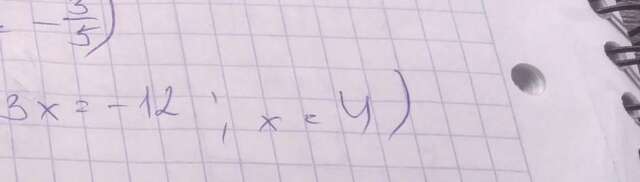 = -3/5)
3x = -12 ; x = 4)